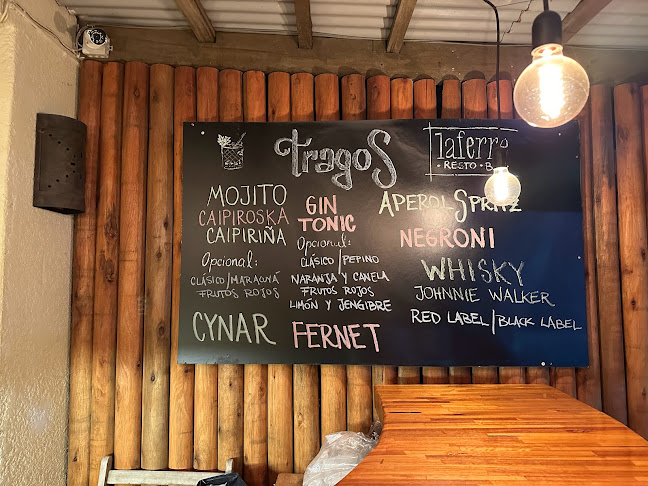 Tragos
laferr
RESTO
MOJITO
CAIPIROSKA
CAIPIRIÑA
Opcional:
CLÁSICO/MARACUYÁ
FRUTOS ROJOS
CYNAR
GIN
TONIC
Opcional:
CLÁSICO/PEPINO
NARANJA Y CANELA
FRUTOS ROJOS
LIMÓN Y JENGIBRE
FERNET
APEROL SPRITZ
NEGRONI
WHISKY
JOHNNIE WALKER
RED LABEL/BLACK LABEL